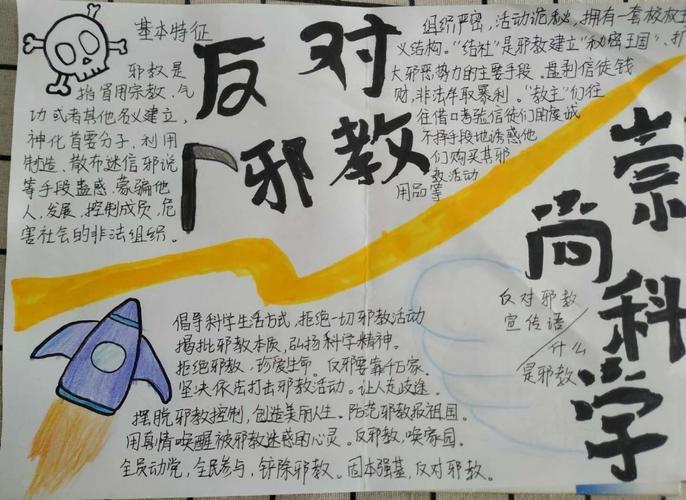 反对
邪教
崇尚科学
基本特征
邪教是
指冒用宗教、气
功或者其他名义建立,
神化首要分子,利用
制造、散布迷信邪说
等手段蛊惑、蒙骗他
人,发展、控制成员,危
害社会的非法组织。
组织严密,活动诡秘,拥有一套被教主
义结构。“结社”是邪教建立“秘密王国”、扩
大邪恶势力的主要手段。盘剥信徒钱
财,非法牟取暴利。“教主”们往
往借口考验信徒们的虔诚
不择手段地诱惑他
们购买其邪
教活动
用品等
反对邪教
宣传语
什么
是邪教
倡导科学生活方式,拒绝一切邪教活动
揭批邪教本质,弘扬科学精神。
拒绝邪教,珍爱生命。反邪要靠千万家。
坚决依法打击邪教活动。让人走歧途。
摆脱邪教控制,创造美丽人生。防范邪教报祖国。
用真情唤醒被邪教迷惑的心灵。反邪教,唤家园。
全员动党,全民参与,铲除邪教。固本强基,反对邪教。